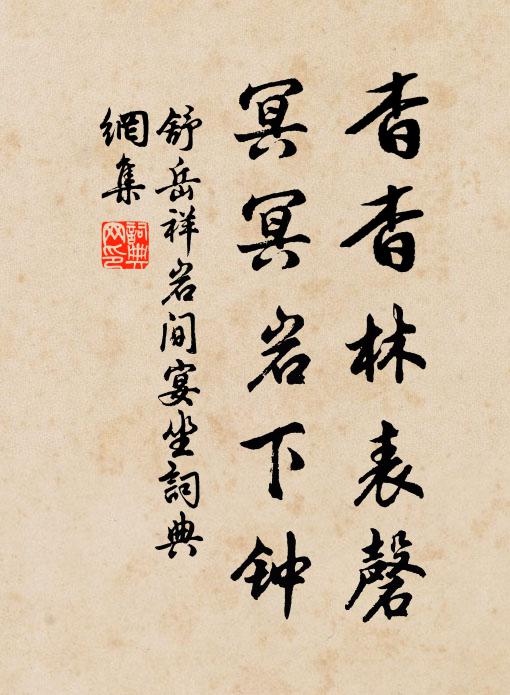 杳杳林表磬
冥冥岩下钟
舒岳祥岩间宴坐詞典
網集
詞典
网印